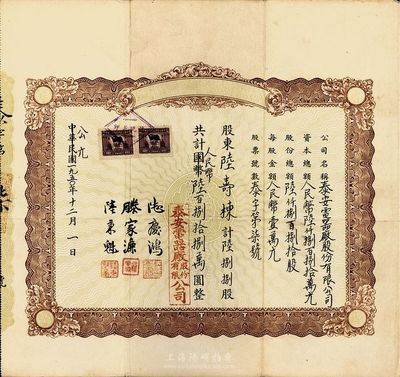 公司名稱泰安電器廠股份有限公司
資本總額人民幣陸仟捌百捌拾萬元
股份總額陸仟捌百捌拾股
每股金額人民幣壹萬元
股票號數泰字第柒號
股東陸壽棟計陸捌捌股
人民幣
共計國幣陸百捌拾捌萬圓整
泰安電器廠股份有限公司
滕家濂
公元
中華民國一九五〇年十二月一日
上海陽明拍賣